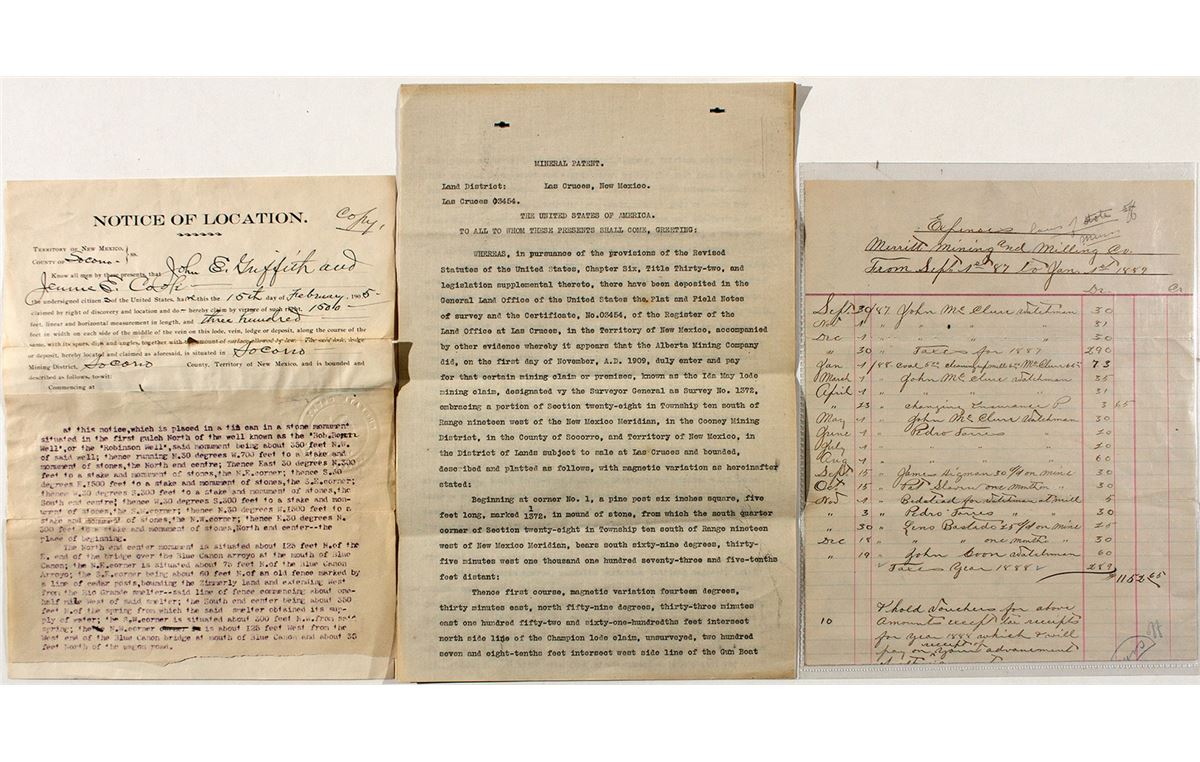 NOTICE OF LOCATION.
Copy.
TERRITORY OF NEW MEXICO,
COUNTY OF Socorro ss.
Know all men by these presents, that John E. Griffith and
Jennie E. Cook
the undersigned citizens of the United States, have this the 15th day of February, 1905
claimed by right of discovery and location and do hereby claim by virtue of such right, 1500
feet, linear and horizontal measurement in length, and three hundred
feet in width on each side of the middle of the vein on this lode, vein, ledge or deposit, along the course of the
same, with its spurs, dips and angles, together with the amount of surface allowed by law. The said vein, ledge
or deposit, hereby located and claimed as aforesaid, is situated in Socorro
Mining District, Socorro County, Territory of New Mexico, and is bounded and
described as follows, to-wit:
Commencing at
at this notice, which is placed in a tin can in a stone monument
situated in the first gulch North of the well known as the
Well", or the "Robinson Well", said monument being about 350 feet N.W.
of said well; thence running N.30 degrees W.700 feet to a stake and
monument of stones, the North end centre; Thence East 30 degrees N.300
feet to a stake and monument of stones, the N.E. corner; thence S.30
degrees E.1500 feet to a stake and monument of stones, the S.E. corner;
thence W.30 degrees S.300 feet to a stake and monument of stones, the
South end centre; thence W.30 degrees S.300 feet to a stake and mon-
ument of stones, the S.W. corner; thence N.30 degrees W.1500 feet to a
stake and monument of stones, the N.W. corner; thence E.30 degrees N.
300 feet to a stake and monument of stones, North end center--the
place of beginning.
The North end center monument is situated about 125 feet N. of the
E. end of the bridge over the Blue Canon arroyo at the mouth of Blue
Canon; the N.E. corner is situated about 75 feet N. of the Blue Canon
Arroyo; the S.E. corner being about 60 feet N. of an old fence marked by
a line of cedar posts, bounding the Zimmerly land and extending West
from the Rio Grande smelter--said line of fence commencing about one-
half mile West of said smelter; the South end center being about 350
feet N. of the spring from which the said smelter obtained its sup-
ply of water; the S.W. corner is situated about 500 feet N.W. from said
spring; the N.W. corner is about 125 feet West from the
West end of the Blue Canon bridge at mouth of Blue Canon and about 35
feet North of the wagon road.
MINERAL PATENT.
Land District: Las Cruces, New Mexico.
Las Cruces 03454.
THE UNITED STATES OF AMERICA.
TO ALL TO WHOM THESE PRESENTS SHALL COME, GREETING:
WHEREAS, in pursuance of the provisions of the Revised
Statutes of the United States, Chapter Six, Title Thirty-two, and
legislation supplemental thereto, there have been deposited in the
General Land Office of the United States the plat and Field Notes
of survey and the Certificate, No.03454, of the Register of the
Land Office at Las Cruces, in the Territory of New Mexico, accompanied
by other evidence whereby it appears that the Alberta Mining Company
did, on the first day of November, A.D. 1909, duly enter and pay
for that certain mining claim or premises, known as the Ida May lode
mining claim, designated vy the Surveyor General as Survey No. 1372,
embracing a portion of Section twenty-eight in Township ten south of
Range nineteen west of the New Mexico Meridian, in the Cooney Mining
District, in the County of Socorro, and Territory of New Mexico, in
the District of Lands subject to sale at Las Cruces and bounded,
described and platted as follows, with magnetic variation as hereinafter
stated:
Beginning at corner No. 1, a pine post six inches square, five
feet long, marked 1/1372, in mound of stone, from which the south quarter
corner of Section twenty-eight in Township ten south of Range nineteen
west of New Mexico Meridian, bears south sixty-nine degrees, thirty-
five minutes west one thousand one hundred seventy-three and five-tenths
feet distant:
Thence first course, magnetic variation fourteen degrees,
thirty minutes east, north fifty-nine degrees, thirty-three minutes
east one hundred fifty-two and sixty-one-hundredths feet intersect
north side line of the Champion lode claim, unsurveyed, two hundred
seven and eight-tenths feet intersect west side line of the Gun Boat
Expenses
Merritt Mining and Milling Co.
From Sept 1st 87 to Jan. 1st 1889
Dr. Cr.
Sept 30 John McClure Watchman 30
Oct 1 " " " " 31
Dec 1 " " " " 30
" 30 " Taxes for 1887 290
Jan 1/88 73
March 1 " John McClure Watchman 35
April 1 " " " " 31
" 23 " changing Insurance P. 3 65
May 1 " John McClure Watchman 30
1 " Pedro Torres 20
60
Sept 15 " James Higman 30 on mine 30
Oct 15 " one month " 30
Nov 5
" 3 " Pedro Torres " " 30
" 30 " on mine
Dec 18 " " " one month " 30
" " John Coon Watchman 60
" Taxes Year 1888 289
$1152.65
I hold Vouchers for above
10 amounts except tax receipts
for year 1888 which I will
pay on your advancement